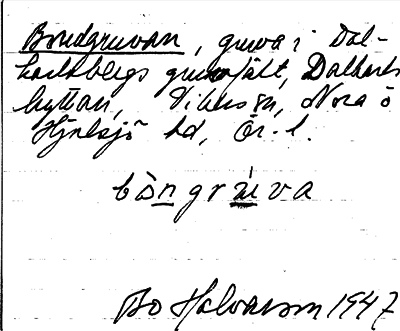 Bondgruvan, gruva i Dal-
karlsbergs gruvfält, Dalkarls
hyttan, Vikers sn, Nora o
Hjulsjö hd, Ör. l.
bo᷄ngruva
Bo Halvarson 1947